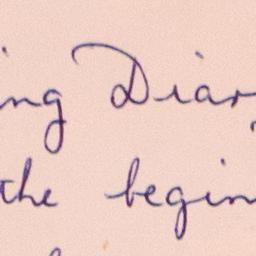 ing Diar
the begin